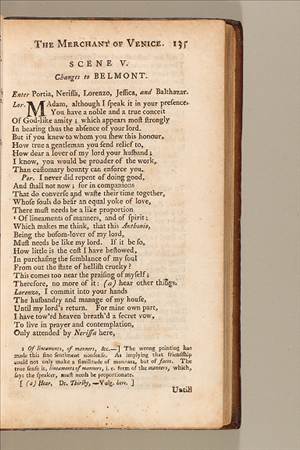 The Merchant of Venice. 135
SCENE V.
Changes to BELMONT.
Enter Portia, Nerissa, Lorenzo, Jessica, and Balthazar.
Lor. MAdam, although I speak it in your presence.
You have a noble and a true conceit
Of God-like amity; which appears most strongly
In bearing thus the absence of your lord.
But if you knew to whom you shew this honour,
How true a gentleman you send relief to,
How dear a lover of my lord your husband;
I know, you would be prouder of the work,
Than customary bounty can enforce you.
Por. I never did repent of doing good,
And shall not now; for in companions
That do converse and waste their time together,
Whose souls do bear an equal yoke of love,
There must needs be a like proportion
1 Of lineaments, of manners, and of spirit;
Which makes me think, that this Anthonio,
Being the bosom-lover of my lord,
Must needs be like my lord. If it be so,
How little is the cost I have bestowed,
In purchasing the semblance of my soul
From out the state of hellish cruelty?
This comes too near the praising of myself;
Therefore, no more of it: (a) hear other things.
Lorenzo, I commit into your hands
The husbandry and manage of my house,
Until my lord's return. For mine own part,
I have tow'rd heaven breath'd a secret vow,
To live in prayer and contemplation,
Only attended by Nerissa here,
1 Of lineaments, of manners, &c.—] The wrong printing has
made this fine sentiment nonsense. As implying that friendship
would not only make a similitude of manners, but of faces. The
true sense is, lineaments of manners, i. e. form of the manners, which,
says the speaker, must needs be proportionate.
[ (a) Hear, Dr. Thirlby, —Vulg. here. ]
Until